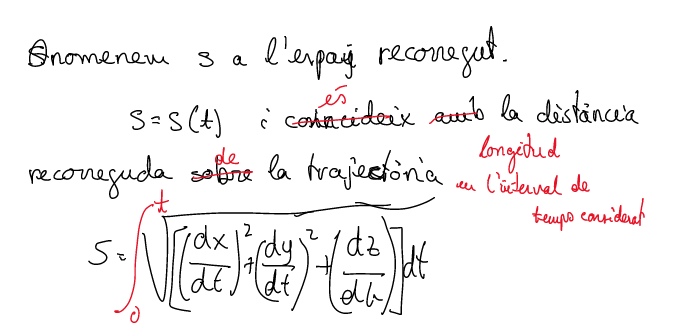 Anomenem s a l'espai recorregut.
s=s(t) i és coincideix amb la distància
recorreguda de sobre la trajectòria longitud en l'interval de temps considerat
S=∫₀ᵗ √[(dx/dt)²+(dy/dt)²+(dz/dt)]dt